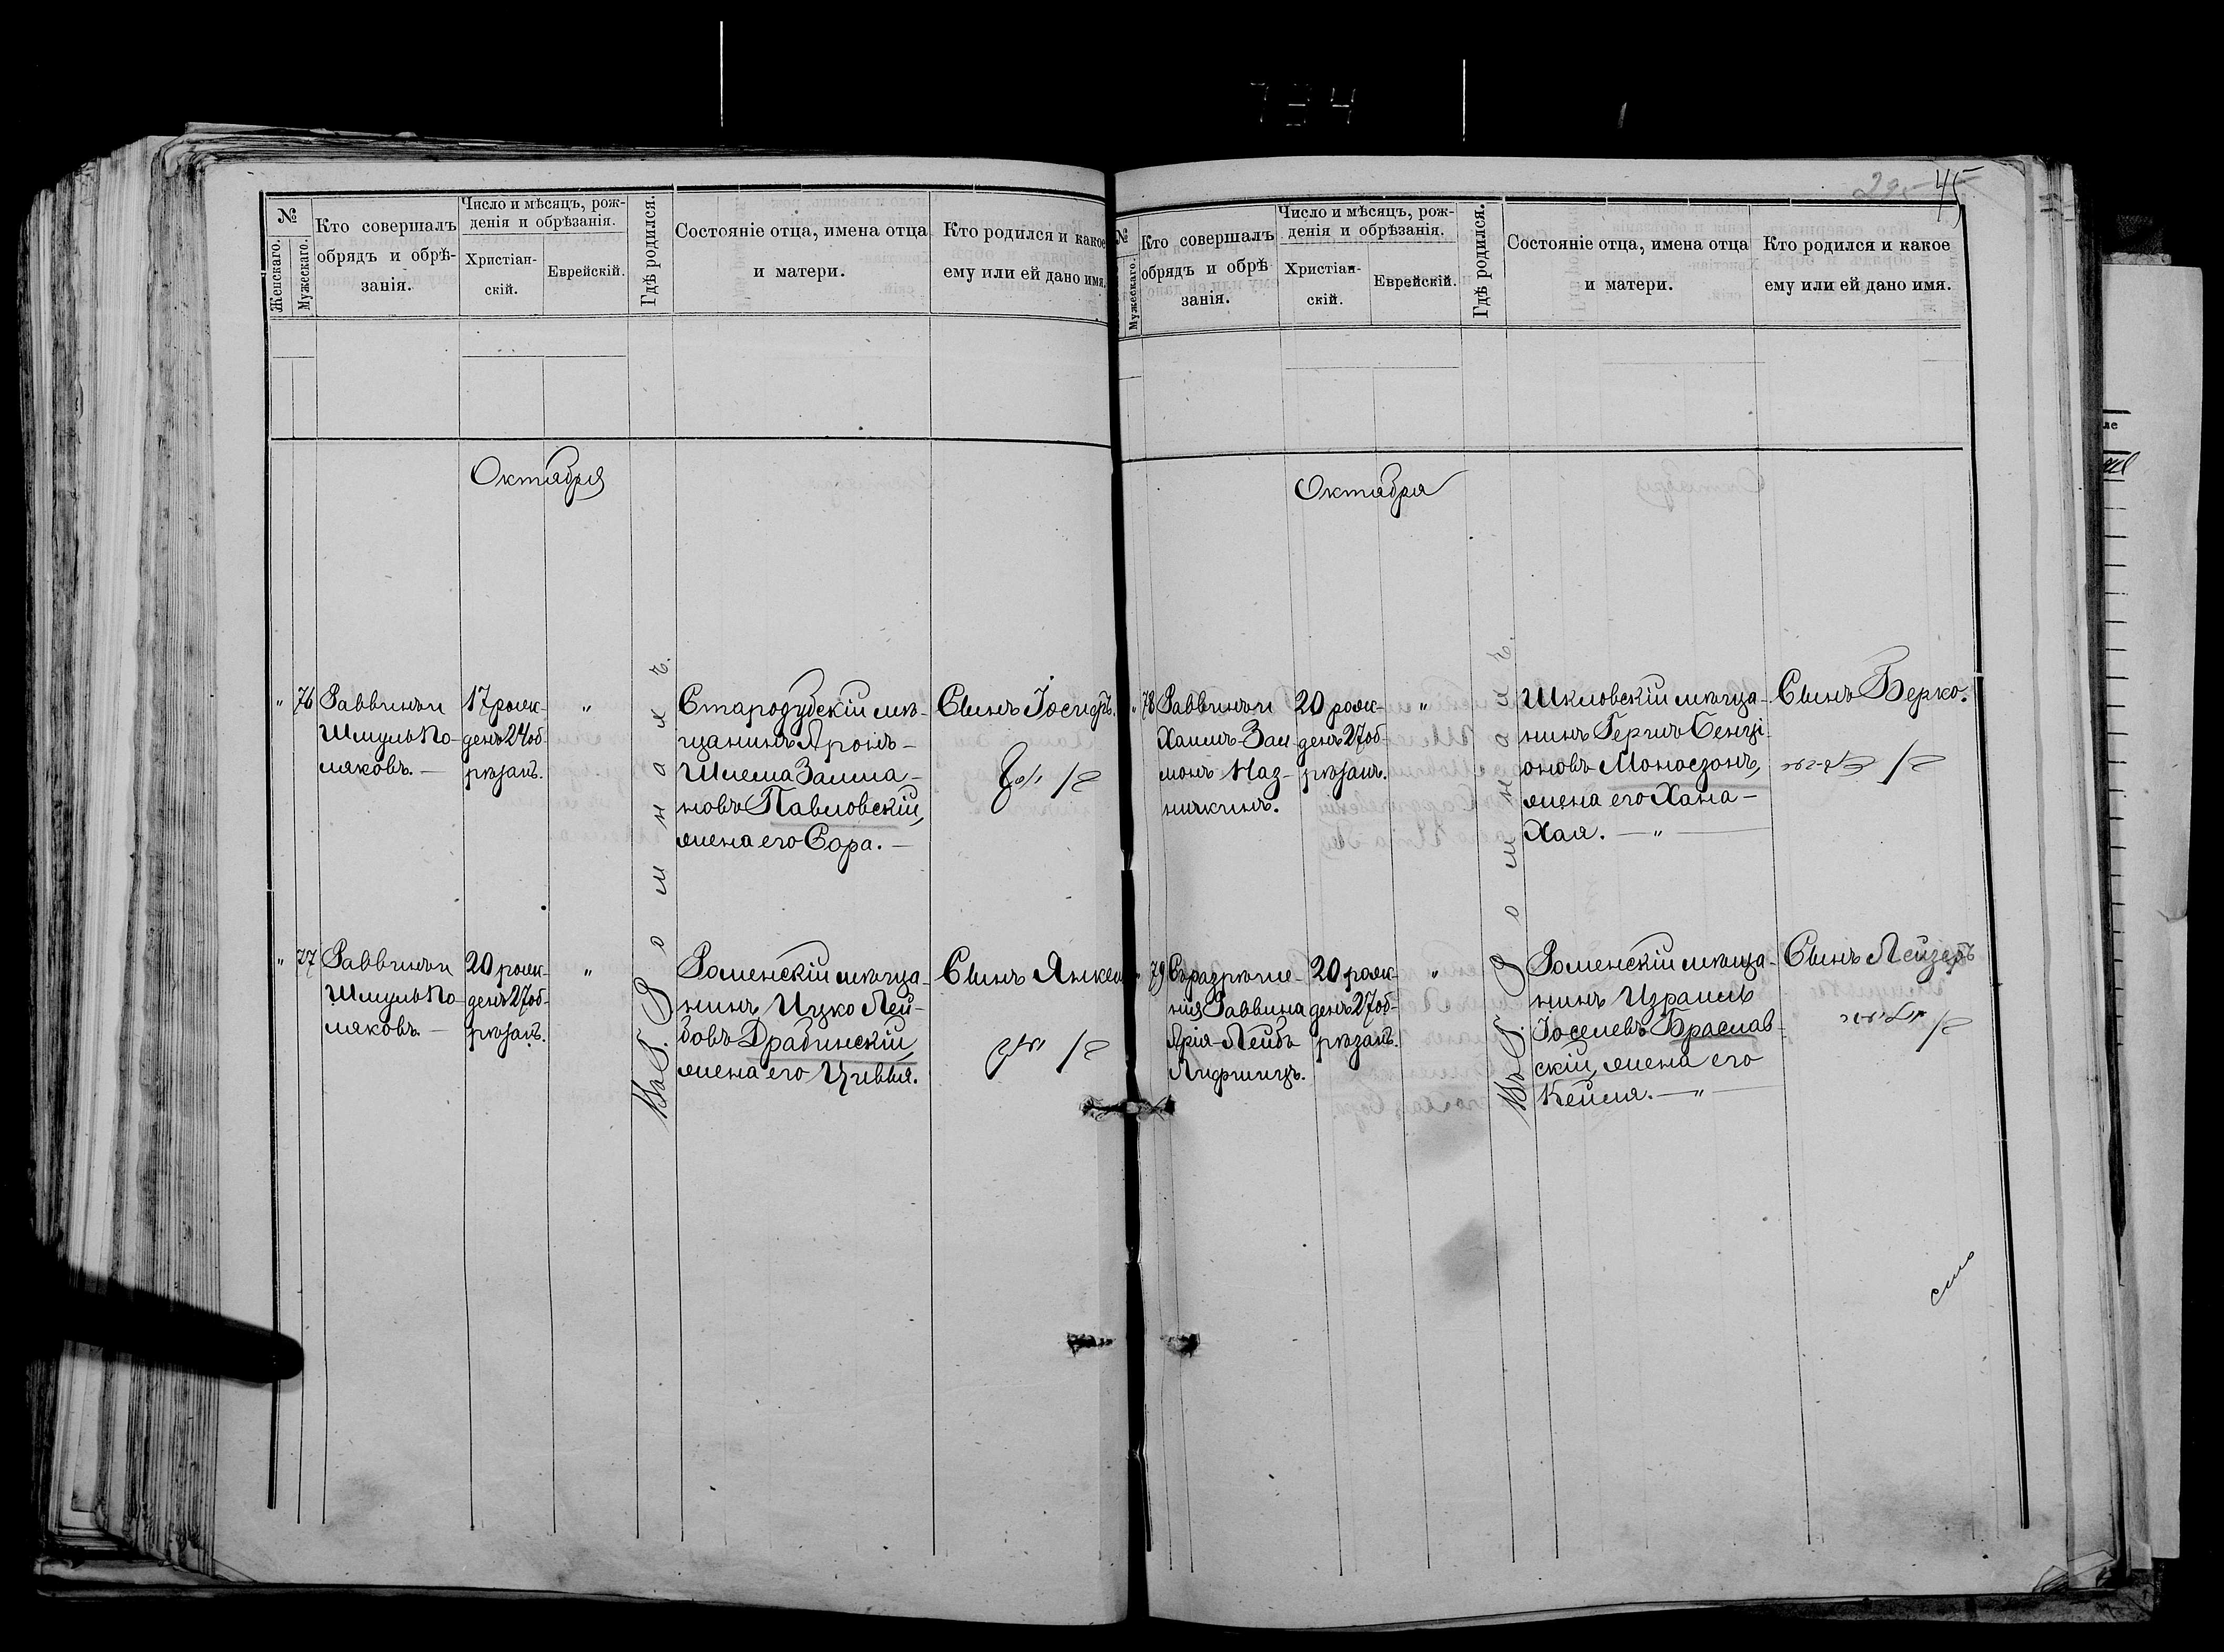 734
29. 45
№
Женскаго.
Мужескаго.
Кто совершалъ
обрядъ и обрѣ-
занія.
Число и мѣсяцъ, рож-
денія и обрѣзанія.
Христіан-
скій.
Еврейскій.
Гдѣ родился.
Состояніе отца, имена отца
и матери.
Кто родился и какое
ему или ей дано имя.
Октября
" 76
Раввинъ и
Шмуль По-
ляковъ. —
17 рож-
денъ 24 об-
рѣзанъ.
"
Стародубскій мѣ-
щанинъ Аронъ-
Шлема Залма-
новъ Павловскій,
жена его Сора. —
Сынъ Іосифъ.
בן יוסף
" 77
Раввинъ и
Шмуль По-
ляковъ. —
20 рож-
денъ 27 об-
рѣзанъ.
"
Роменскій мѣща-
нинъ Ицко Лей-
бовъ Драбинскій,
жена его Цивья.
Сынъ Янкель
בן יעקב
Въ Г. Ромнахъ.
№
Мужескаго.
Кто совершалъ
обрядъ и обрѣ-
занія.
Число и мѣсяцъ, рож-
денія и обрѣзанія.
Христіан-
скій.
Еврейскій.
Гдѣ родился.
Состояніе отца, имена отца
и матери.
Кто родился и какое
ему или ей дано имя.
Октября
" 78
Раввинъ и
Хаимъ-Зал-
монъ Маз-
нижинъ.
20 рож-
денъ 27 об-
рѣзанъ.
"
Шкловскій мѣща-
нинъ Гершъ Бенці-
оновъ Моносзонъ,
жена его Хана-
Хая. — " —
Сынъ Берко.
בן
" 79
Съ разрѣше-
нія Раввина
Арія-Лейбъ
Лифшицъ.
20 рож-
денъ 27 об-
рѣзанъ.
"
Роменскій мѣща-
нинъ Израиль
Іоселевъ Браслав-
скій, жена его
Кейля. — " —
Сынъ Лейзеръ
בן
Въ Г. Ромнахъ.